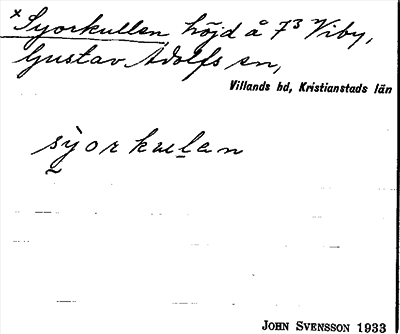 × Syorkullen, höjd å 7³ Viby,
Gustav Adolfs sn,
Villands hd, Kristianstads län
syorkulan
JOHN SVENSSON 1933